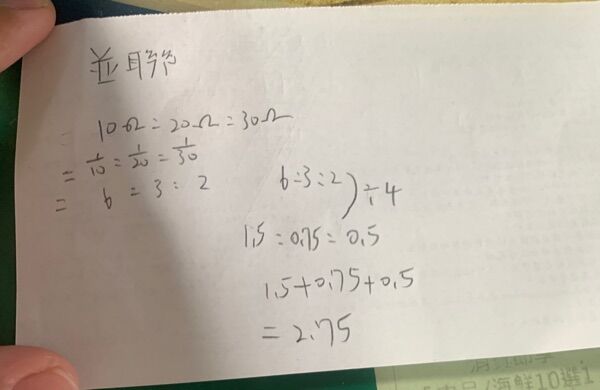 並聯
10Ω:20Ω:30Ω
= 1/10 : 1/20 : 1/30
= 6 : 3 : 2
6:3:2 ) ÷4
1.5:0.75:0.5
1.5+0.75+0.5
=2.75
海鮮10選1